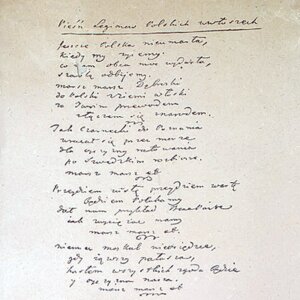 Pieśń Legionów Polskich we Włoszech
Jeszcze Polska nieumarła,
kiedy my żyjemy
co nam obca moc wydarła,
szablą odbijemy.
marsz marsz Dąbrowski
do Polski z ziemi włoski
za Twoim przewodem
złączem się z narodem.
Jak Czarnecki do Poznania
wracał się przez morze
dla ojczyzny ratowania
po szwedzkim rozbiorze.
marsz marsz etc.
Przejdziem Wisłę przejdziem Wartę
będziem Polakami
dał nam przykład Bonaparte
jak zwyciężać mamy
marsz marsz etc.
niemiec moskal nieosiędzie,
gdy jąwszy pałasza,
hasłem wszystkich zgoda będzie
i ojczyzna nasza.
marsz marsz etc.